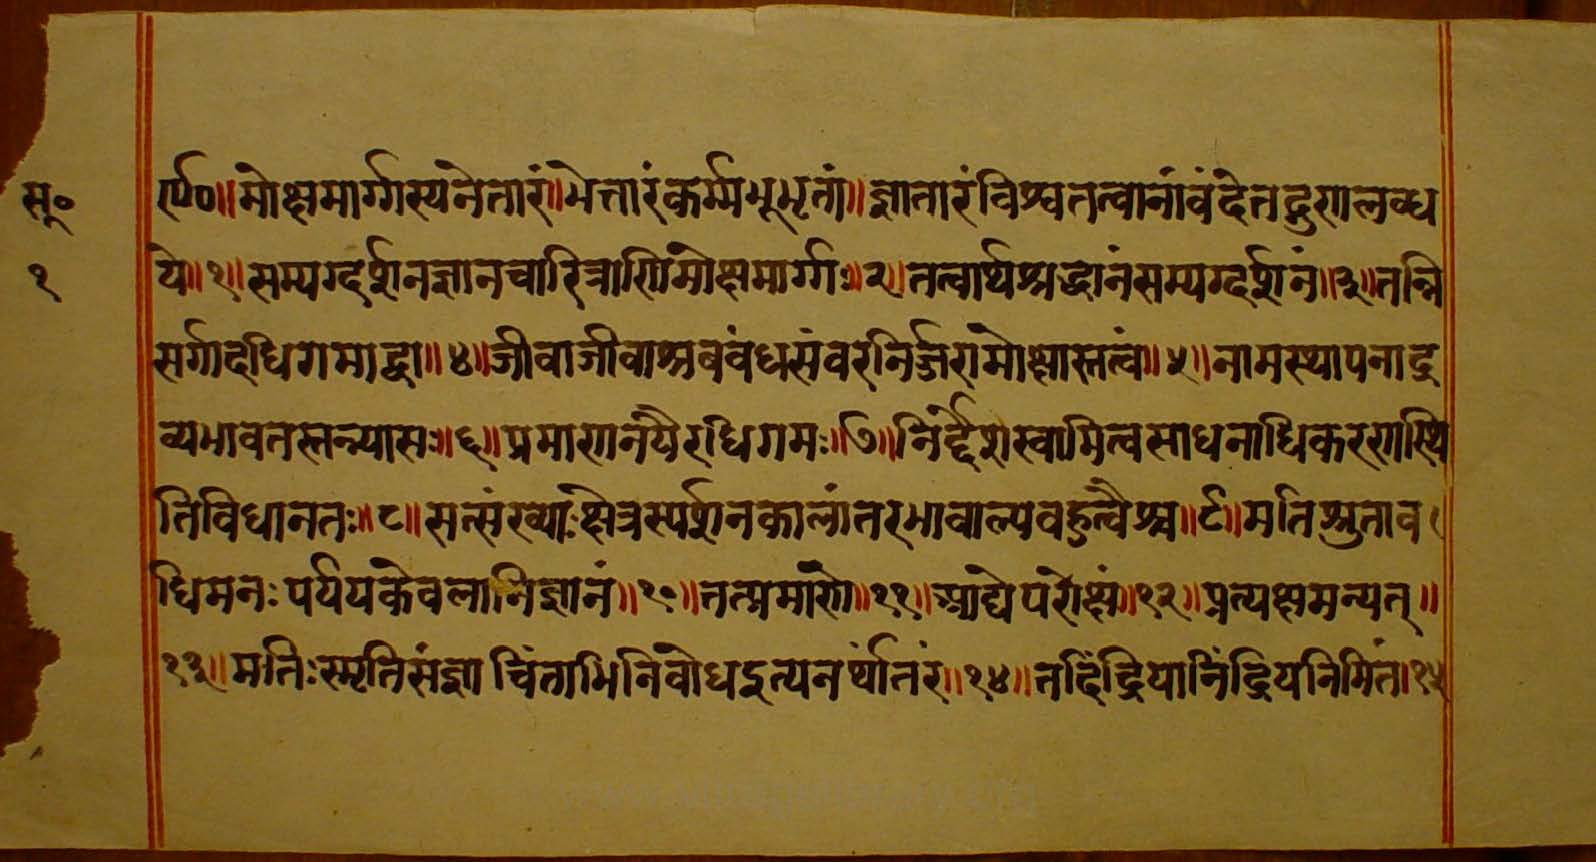 सू०
१
ॴ०॥मोक्षमार्ग्गस्यनेतारं॥भेत्तारंकर्म्मभूभृतां॥ज्ञातारंविश्वतत्वानांवंदेतद्गुणालब्ध
ये॥१॥सम्यग्दर्शनज्ञानचारित्राणिमोक्षमार्ग्गः॥२॥तत्वार्थश्रद्धानंसम्यग्दर्शनं॥३॥तन्नि
सर्गादधिगमाद्वा॥४॥जीवाजीवाश्रवबंधसंवरनिर्ज्जरामोक्षास्तत्वं॥५॥नामस्थापनाद्र
व्यभावतस्तन्न्यासः॥६॥प्रमाणनयैरधिगमः॥७॥निर्द्देशस्वामित्वसाधनाधिकरणस्थि
तिविधानतः॥८॥सत्संख्याःक्षेत्रस्पर्शनकालांतरभावाल्पबहुत्वैश्च॥९॥मतिश्रुताव
धिमनःपर्ययकेवलानिज्ञानं॥१०॥तत्प्रमाणे॥११॥आद्येपरोक्षं॥१२॥प्रत्यक्षमन्यत्॥
१३॥मतिःस्मृतिसंज्ञाचिंताभिनिबोधइत्यनर्थांतरं॥१४॥तदिंद्रियानिंद्रियनिमितं।१५